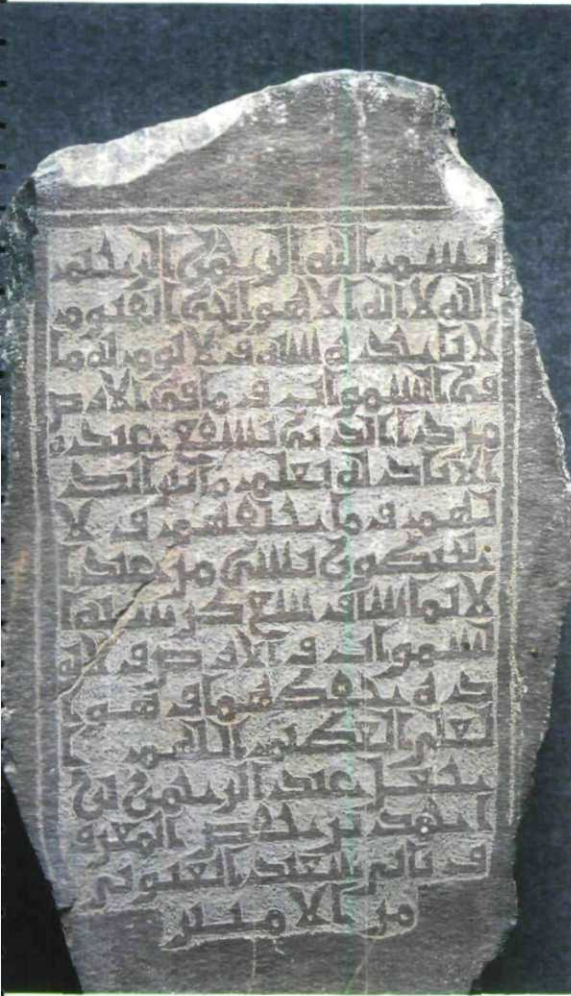 بسم الله الرحمن الرحيم
الله لا اله الا هو الحي القيوم
لا تاخذه سنة و لا نوم له ما
في السموات و ما في الارض
من ذا الذي يشفع عنده
الا باذنه يعلم ما بين ايد
يهم و ما خلفهم و لا
يحيطون بشي من علمه ا
لا بما شا وسع كرسيه ا
لسموات و الارض و لا يو
ده حفظهما و هو ا
لعلي العظيم اللهم ا
جعل عبد الرحمن بن
بن حفص
و
من الامنين